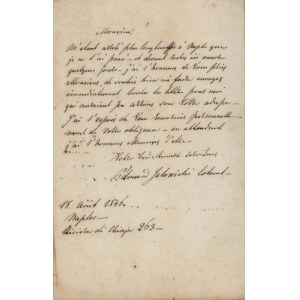 Monsieur!
M'étant arrêté plus longtemps à Naples que
je ne l'ai pensé et devant rester ici encore
quelques jours, j'ai l'honneur de Vous prier
Monsieur, de vouloir bien me faire envoyer
immédiatement toutes les lettres pour moi
qui auraient pu arriver sous Votre adresse.
J'ai l'espoir de Vous remercier personnellement
de votre obligeance – en attendant
j'ai l'honneur Monsieur d'être
Votre
Edouard Jelowicki
18. Août 1846.
Naples
Riviera di Chiaja 263